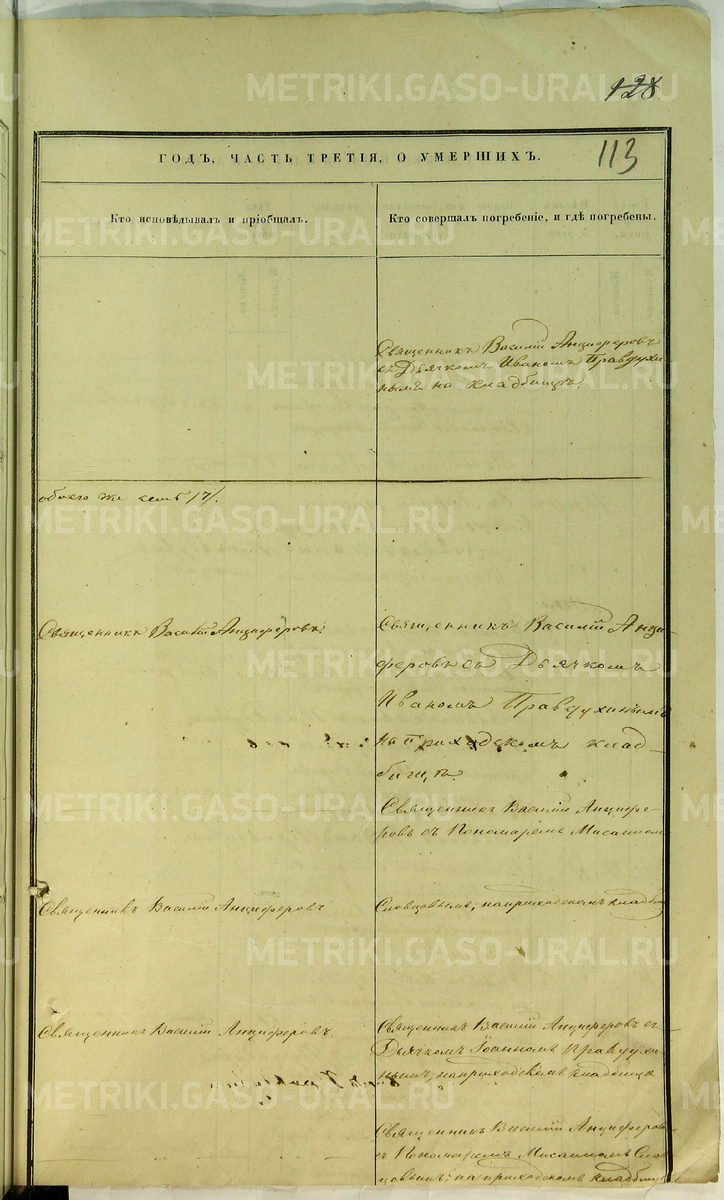 128
113
ГОДЪ, ЧАСТЬ ТРЕТІЯ, О УМЕРШИХЪ.
Кто исповѣдывалъ и пріобщалъ.
Кто совершалъ погребеніе, и гдѣ погребены.
Священникъ Василій Анциферовъ
съ Дьячкомъ Иваномъ Правдухи-
нымъ на кладбищѣ.
обоего же
17/.
Священникъ Василій Анциферовъ.
Священникъ Василій Анци-
феровъ съ Дьячкомъ
Иваномъ Правдухинымъ
на приходскомъ клад-
бищѣ.
Священникъ Василій Анцифе-
ровъ съ Пономаремъ Мисаиломъ
Священникъ Василій Анциферовъ
Словцовымъ, на приходскомъ кладбищѣ
Священникъ Василій Анциферовъ.
Священникъ Василій Анциферовъ съ
Дьячкомъ Іоанномъ Правдухи-
нымъ, на приходскомъ кладбищѣ
Священникъ Василій Анциферовъ
съ Пономаремъ Мисаиломъ Слов-
цовымъ, на приходскомъ кладбищѣ
METRIKI.GASO-URAL.RU